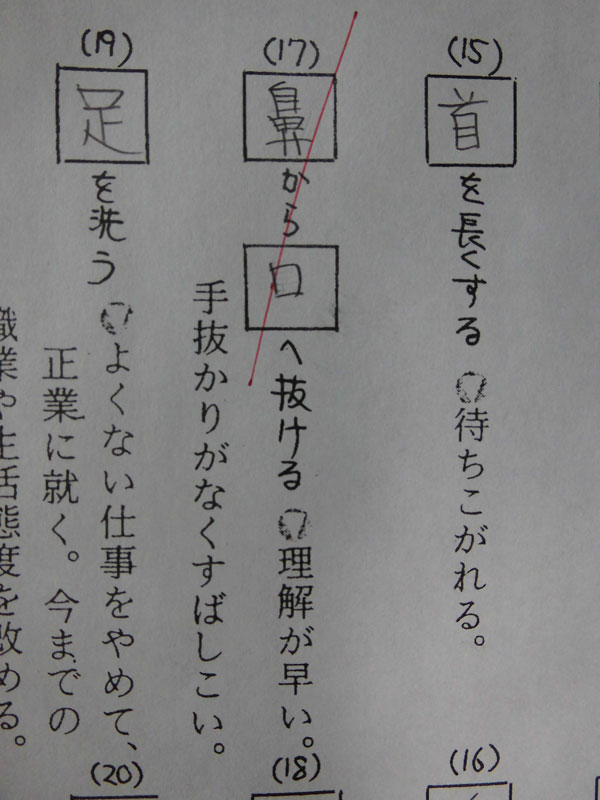 (15)
首を長くする 待ちこがれる。
(16)
(17)
鼻から口へ抜ける 理解が早い。
手抜かりがなくすばしこい。
(18)
(19)
足を洗う よくない仕事をやめて、
正業に就く。今までの
職業や生活態度を改める。
(20)